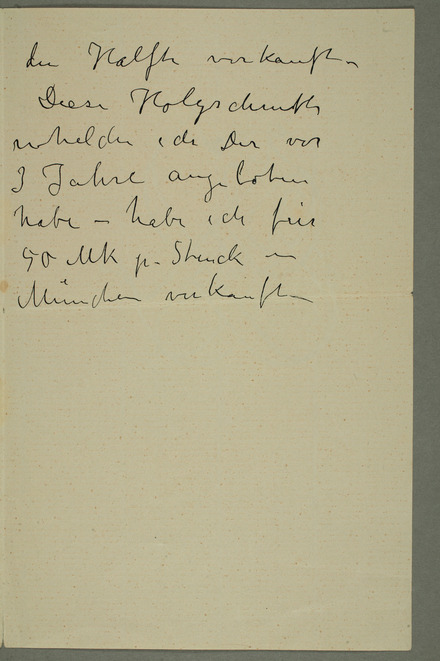 die Hælfte verkauft –
Diese Holzschnitte
welche ich Dir vor
3 Jahre angeboten
habe – habe ich für
50 Mk p. Stuck in
München verkauft –